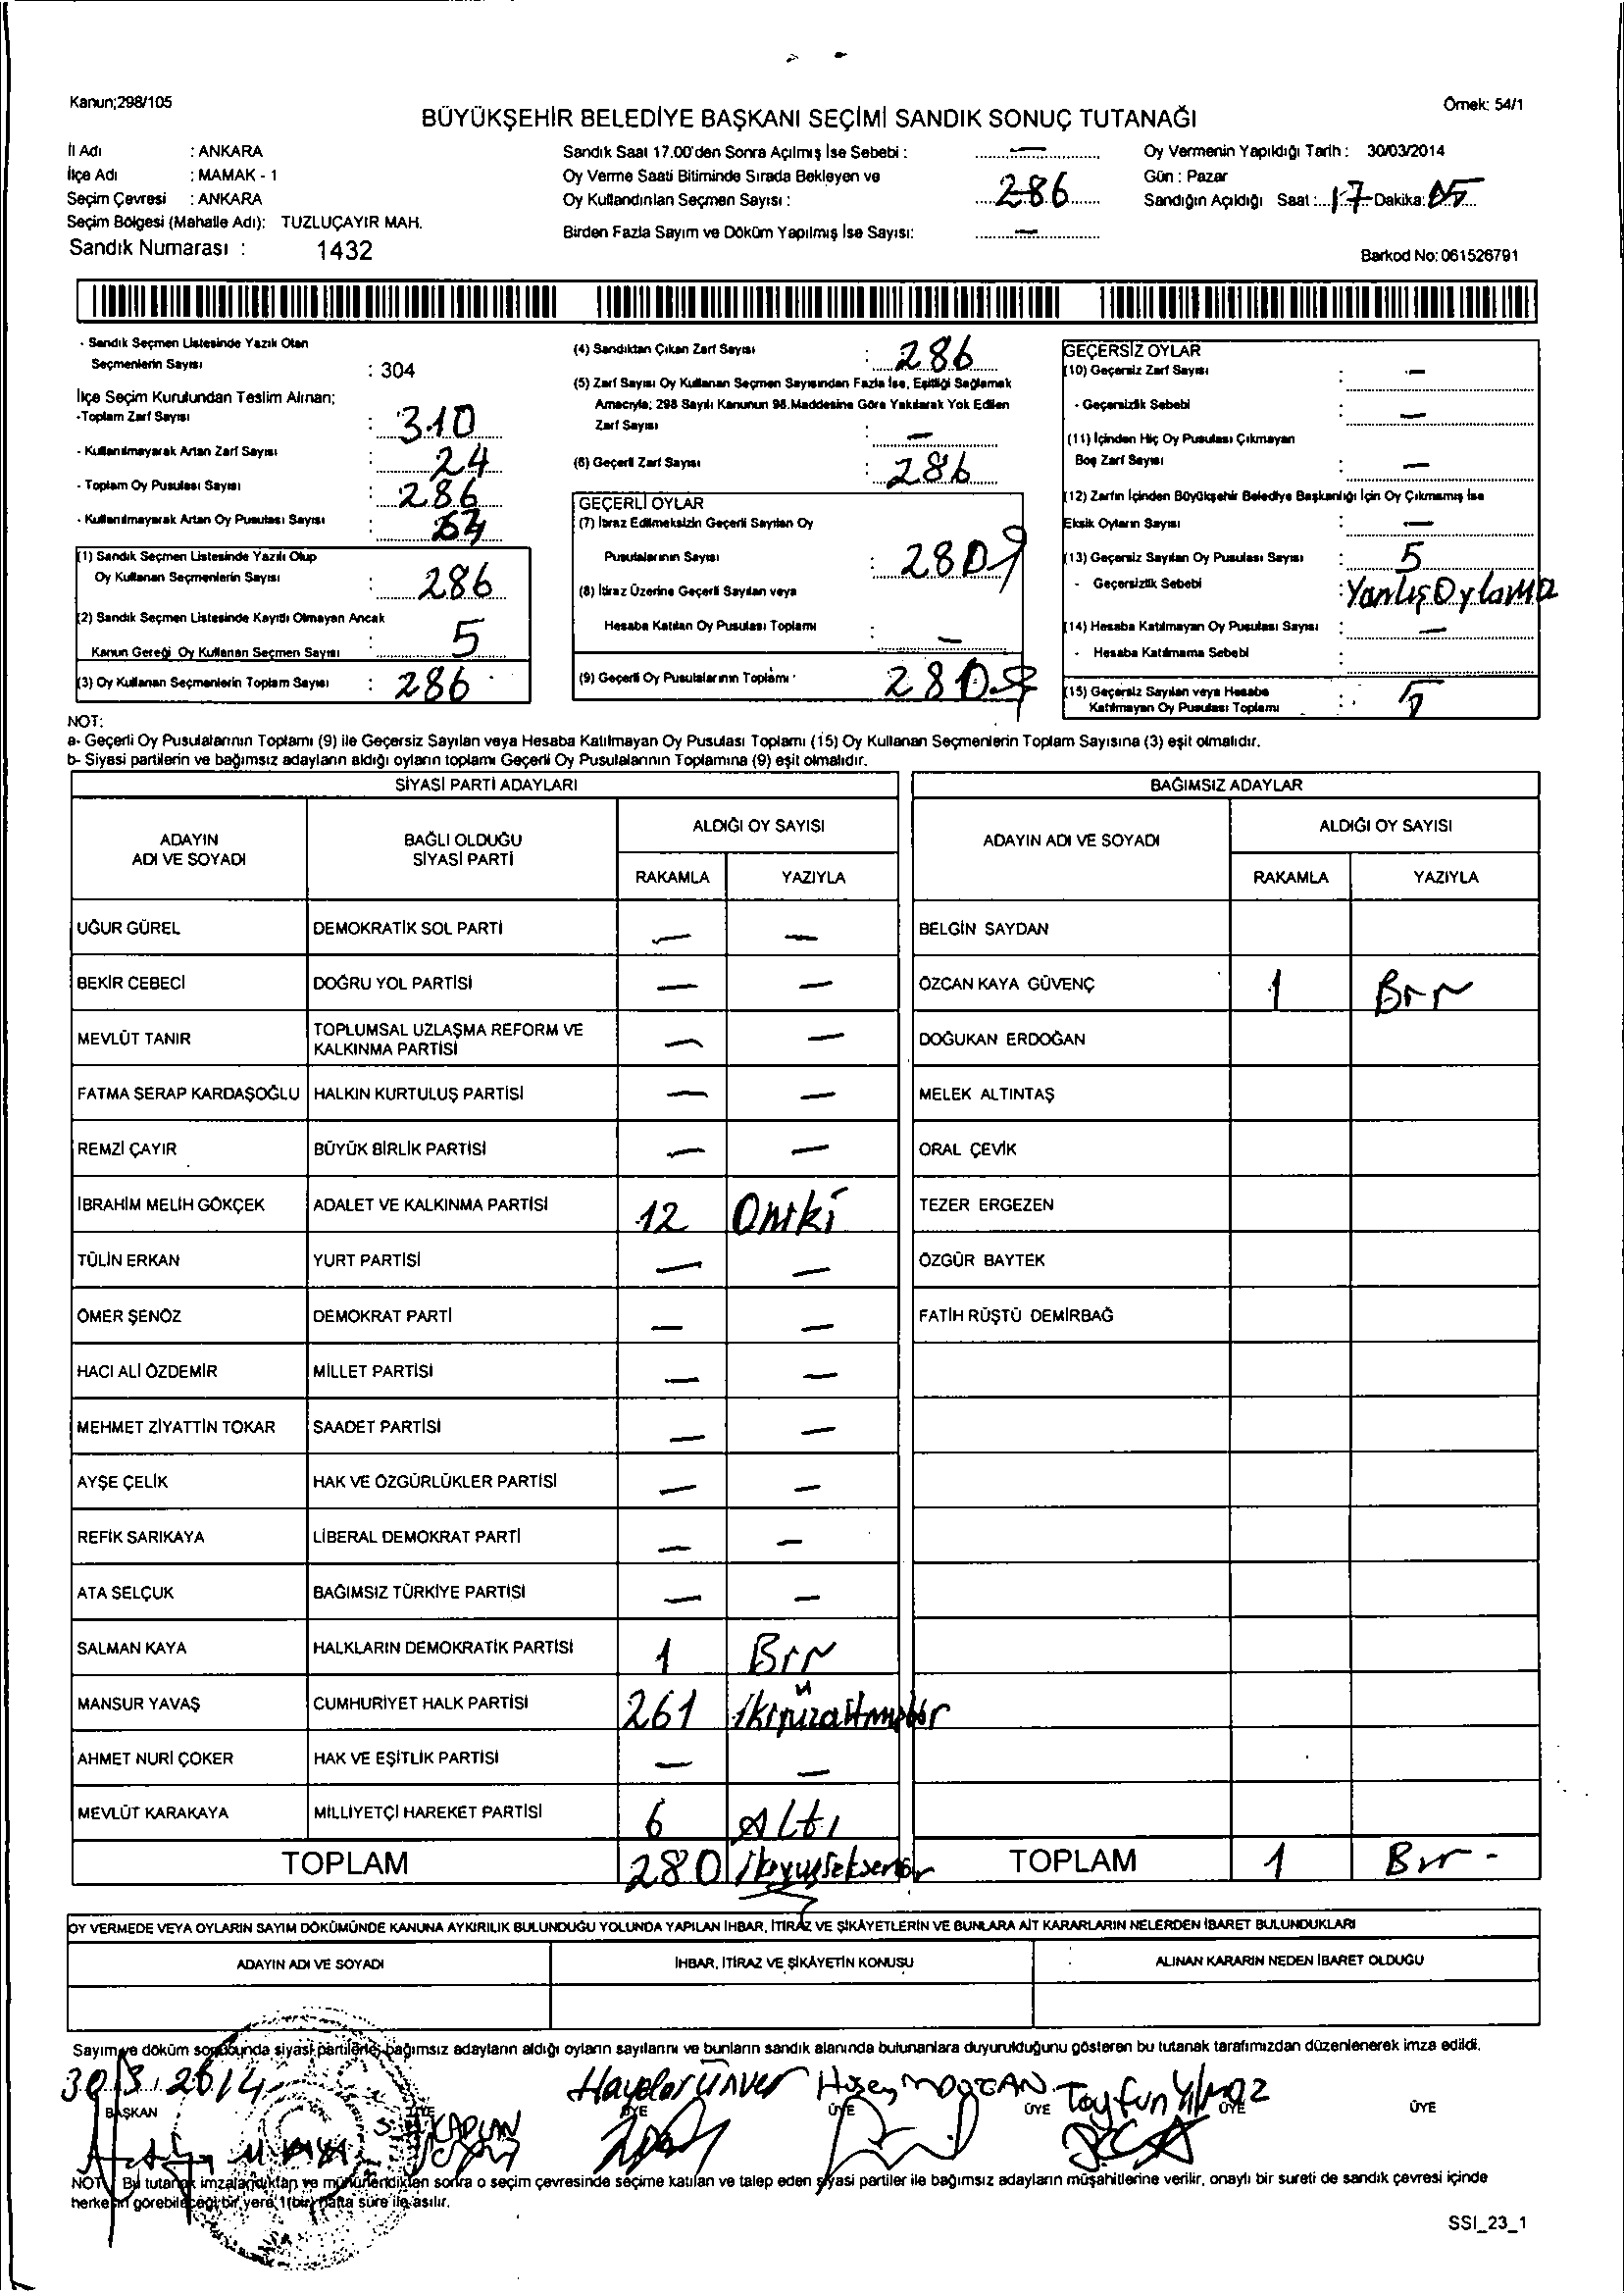 Kanun;298/105
Örnek: 54/1
BÜYÜKŞEHİR BELEDİYE BAŞKANI SEÇİMİ SANDIK SONUÇ TUTANAĞI
İl Adı : ANKARA
İlçe Adı : MAMAK - 1
Seçim Çevresi : ANKARA
Seçim Bölgesi (Mahalle Adı): TUZLUÇAYIR MAH.
Sandık Numarası : 1432
Sandık Saat 17.00'den Sonra Açılmış İse Sebebi : —
Oy Verme Saati Bitiminde Sırada Bekleyen ve
Oy Kullandırılan Seçmen Sayısı : 286
Birden Fazla Sayım ve Döküm Yapılmış İse Sayısı: —
Oy Vermenin Yapıldığı Tarih : 30/03/2014
Gün : Pazar
Sandığın Açıldığı Saat : 17 Dakika: 05
Barkod No: 061526791
- Sandık Seçmen Listesinde Yazılı Olan
Seçmenlerin Sayısı : 304
İlçe Seçim Kurulundan Teslim Alınan;
-Toplam Zarf Sayısı : 310
- Kullanılmayarak Artan Zarf Sayısı : 24
- Toplam Oy Pusulası Sayısı : 286
- Kullanılmayarak Artan Oy Pusulası Sayısı :
(1) Sandık Seçmen Listesinde Yazılı Olup
Oy Kullanan Seçmenlerin Sayısı : 286
(2) Sandık Seçmen Listesinde Kayıtlı Olmayan Ancak
Kanun Gereği Oy Kullanan Seçmen Sayısı : 5
(3) Oy Kullanan Seçmenlerin Toplam Sayısı : 286
(4) Sandıktan Çıkan Zarf Sayısı : 286
(5) Zarf Sayısı Oy Kullanan Seçmen Sayısından Fazla İse, Eşitliği Sağlamak
Amacıyla; 298 Sayılı Kanunun 98.Maddesine Göre Yakılarak Yok Edilen
Zarf Sayısı : —
(6) Geçerli Zarf Sayısı : 286
GEÇERLİ OYLAR
(7) İtiraz Edilmeksizin Geçerli Sayılan Oy
Pusulalarının Sayısı : 280
(8) İtiraz Üzerine Geçerli Sayılan veya
Hesaba Katılan Oy Pusulası Toplamı : —
(9) Geçerli Oy Pusulalarının Toplamı : 280
GEÇERSİZ OYLAR
(10) Geçersiz Zarf Sayısı : —
- Geçersizlik Sebebi : —
(11) İçinden Hiç Oy Pusulası Çıkmayan
Boş Zarf Sayısı : —
(12) Zarfın İçinden Büyükşehir Belediye Başkanlığı İçin Oy Çıkmamış İse
Eksik Oyların Sayısı : —
(13) Geçersiz Sayılan Oy Pusulası Sayısı : 5
- Geçersizlik Sebebi : Yanlış Oylama
(14) Hesaba Katılmayan Oy Pusulası Sayısı : —
- Hesaba Katılmama Sebebi :
(15) Geçersiz Sayılan veya Hesaba
Katılmayan Oy Pusulası Toplamı : 5
NOT:
a- Geçerli Oy Pusulalarının Toplamı (9) ile Geçersiz Sayılan veya Hesaba Katılmayan Oy Pusulası Toplamı (15) Oy Kullanan Seçmenlerin Toplam Sayısına (3) eşit olmalıdır.
b- Siyasi partilerin ve bağımsız adayların aldığı oyların toplamı Geçerli Oy Pusulalarının Toplamına (9) eşit olmalıdır.
SİYASİ PARTİ ADAYLARI
ADAYIN ADI VE SOYADI BAĞLI OLDUĞU SİYASİ PARTİ ALDIĞI OY SAYISI
RAKAMLA YAZIYLA
UĞUR GÜREL DEMOKRATİK SOL PARTİ — —
BEKİR CEBECİ DOĞRU YOL PARTİSİ — —
MEVLÜT TANIR TOPLUMSAL UZLAŞMA REFORM VE KALKINMA PARTİSİ — —
FATMA SERAP KARDAŞOĞLU HALKIN KURTULUŞ PARTİSİ — —
REMZİ ÇAYIR BÜYÜK BİRLİK PARTİSİ — —
İBRAHİM MELİH GÖKÇEK ADALET VE KALKINMA PARTİSİ 12 Oniki
TÜLİN ERKAN YURT PARTİSİ — —
ÖMER ŞENÖZ DEMOKRAT PARTİ — —
HACI ALİ ÖZDEMİR MİLLET PARTİSİ — —
MEHMET ZİYATTİN TOKAR SAADET PARTİSİ — —
AYŞE ÇELİK HAK VE ÖZGÜRLÜKLER PARTİSİ — —
REFİK SARIKAYA LİBERAL DEMOKRAT PARTİ — —
ATA SELÇUK BAĞIMSIZ TÜRKİYE PARTİSİ — —
SALMAN KAYA HALKLARIN DEMOKRATİK PARTİSİ 1 Bir
MANSUR YAVAŞ CUMHURİYET HALK PARTİSİ 261 ikiyüzaltmışbir
AHMET NURİ ÇOKER HAK VE EŞİTLİK PARTİSİ — —
MEVLÜT KARAKAYA MİLLİYETÇİ HAREKET PARTİSİ 6 Altı
TOPLAM 280
BAĞIMSIZ ADAYLAR
ADAYIN ADI VE SOYADI ALDIĞI OY SAYISI
RAKAMLA YAZIYLA
BELGİN SAYDAN
ÖZCAN KAYA GÜVENÇ 1 Bir
DOĞUKAN ERDOĞAN
MELEK ALTINTAŞ
ORAL ÇEVİK
TEZER ERGEZEN
ÖZGÜR BAYTEK
FATİH RÜŞTÜ DEMİRBAĞ
TOPLAM 1 Bir -
OY VERMEDE VEYA OYLARIN SAYIM DÖKÜMÜNDE KANUNA AYKIRILIK BULUNDUĞU YOLUNDA YAPILAN İHBAR, İTİRAZ VE ŞİKÂYETLERİN VE BUNLARA AİT KARARLARIN NELERDEN İBARET BULUNDUKLARI
ADAYIN ADI VE SOYADI İHBAR, İTİRAZ VE ŞİKÂYETİN KONUSU ALINAN KARARIN NEDEN İBARET OLDUĞU
Sayım ve döküm sonucunda siyasi partilerle, bağımsız adayların aldığı oyların sayılarını ve bunların sandık alanında bulunanlara duyurulduğunu gösteren bu tutanak tarafımızdan düzenlenerek imza edildi.
30.3.2014
Haydar Ünver Tayfun Yılmaz
BAŞKAN ÜYE ÜYE ÜYE ÜYE ÜYE ÜYE
KAPLAN
NOT: Bu tutanak imzalandıktan ve mühürlendikten sonra o seçim çevresinde seçime katılan ve talep eden siyasi partiler ile bağımsız adayların müşahitlerine verilir, onaylı bir sureti de sandık çevresi içinde
herkesin görebileceği bir yere, 1(bir) hafta süre ile asılır.
SSI_23_1